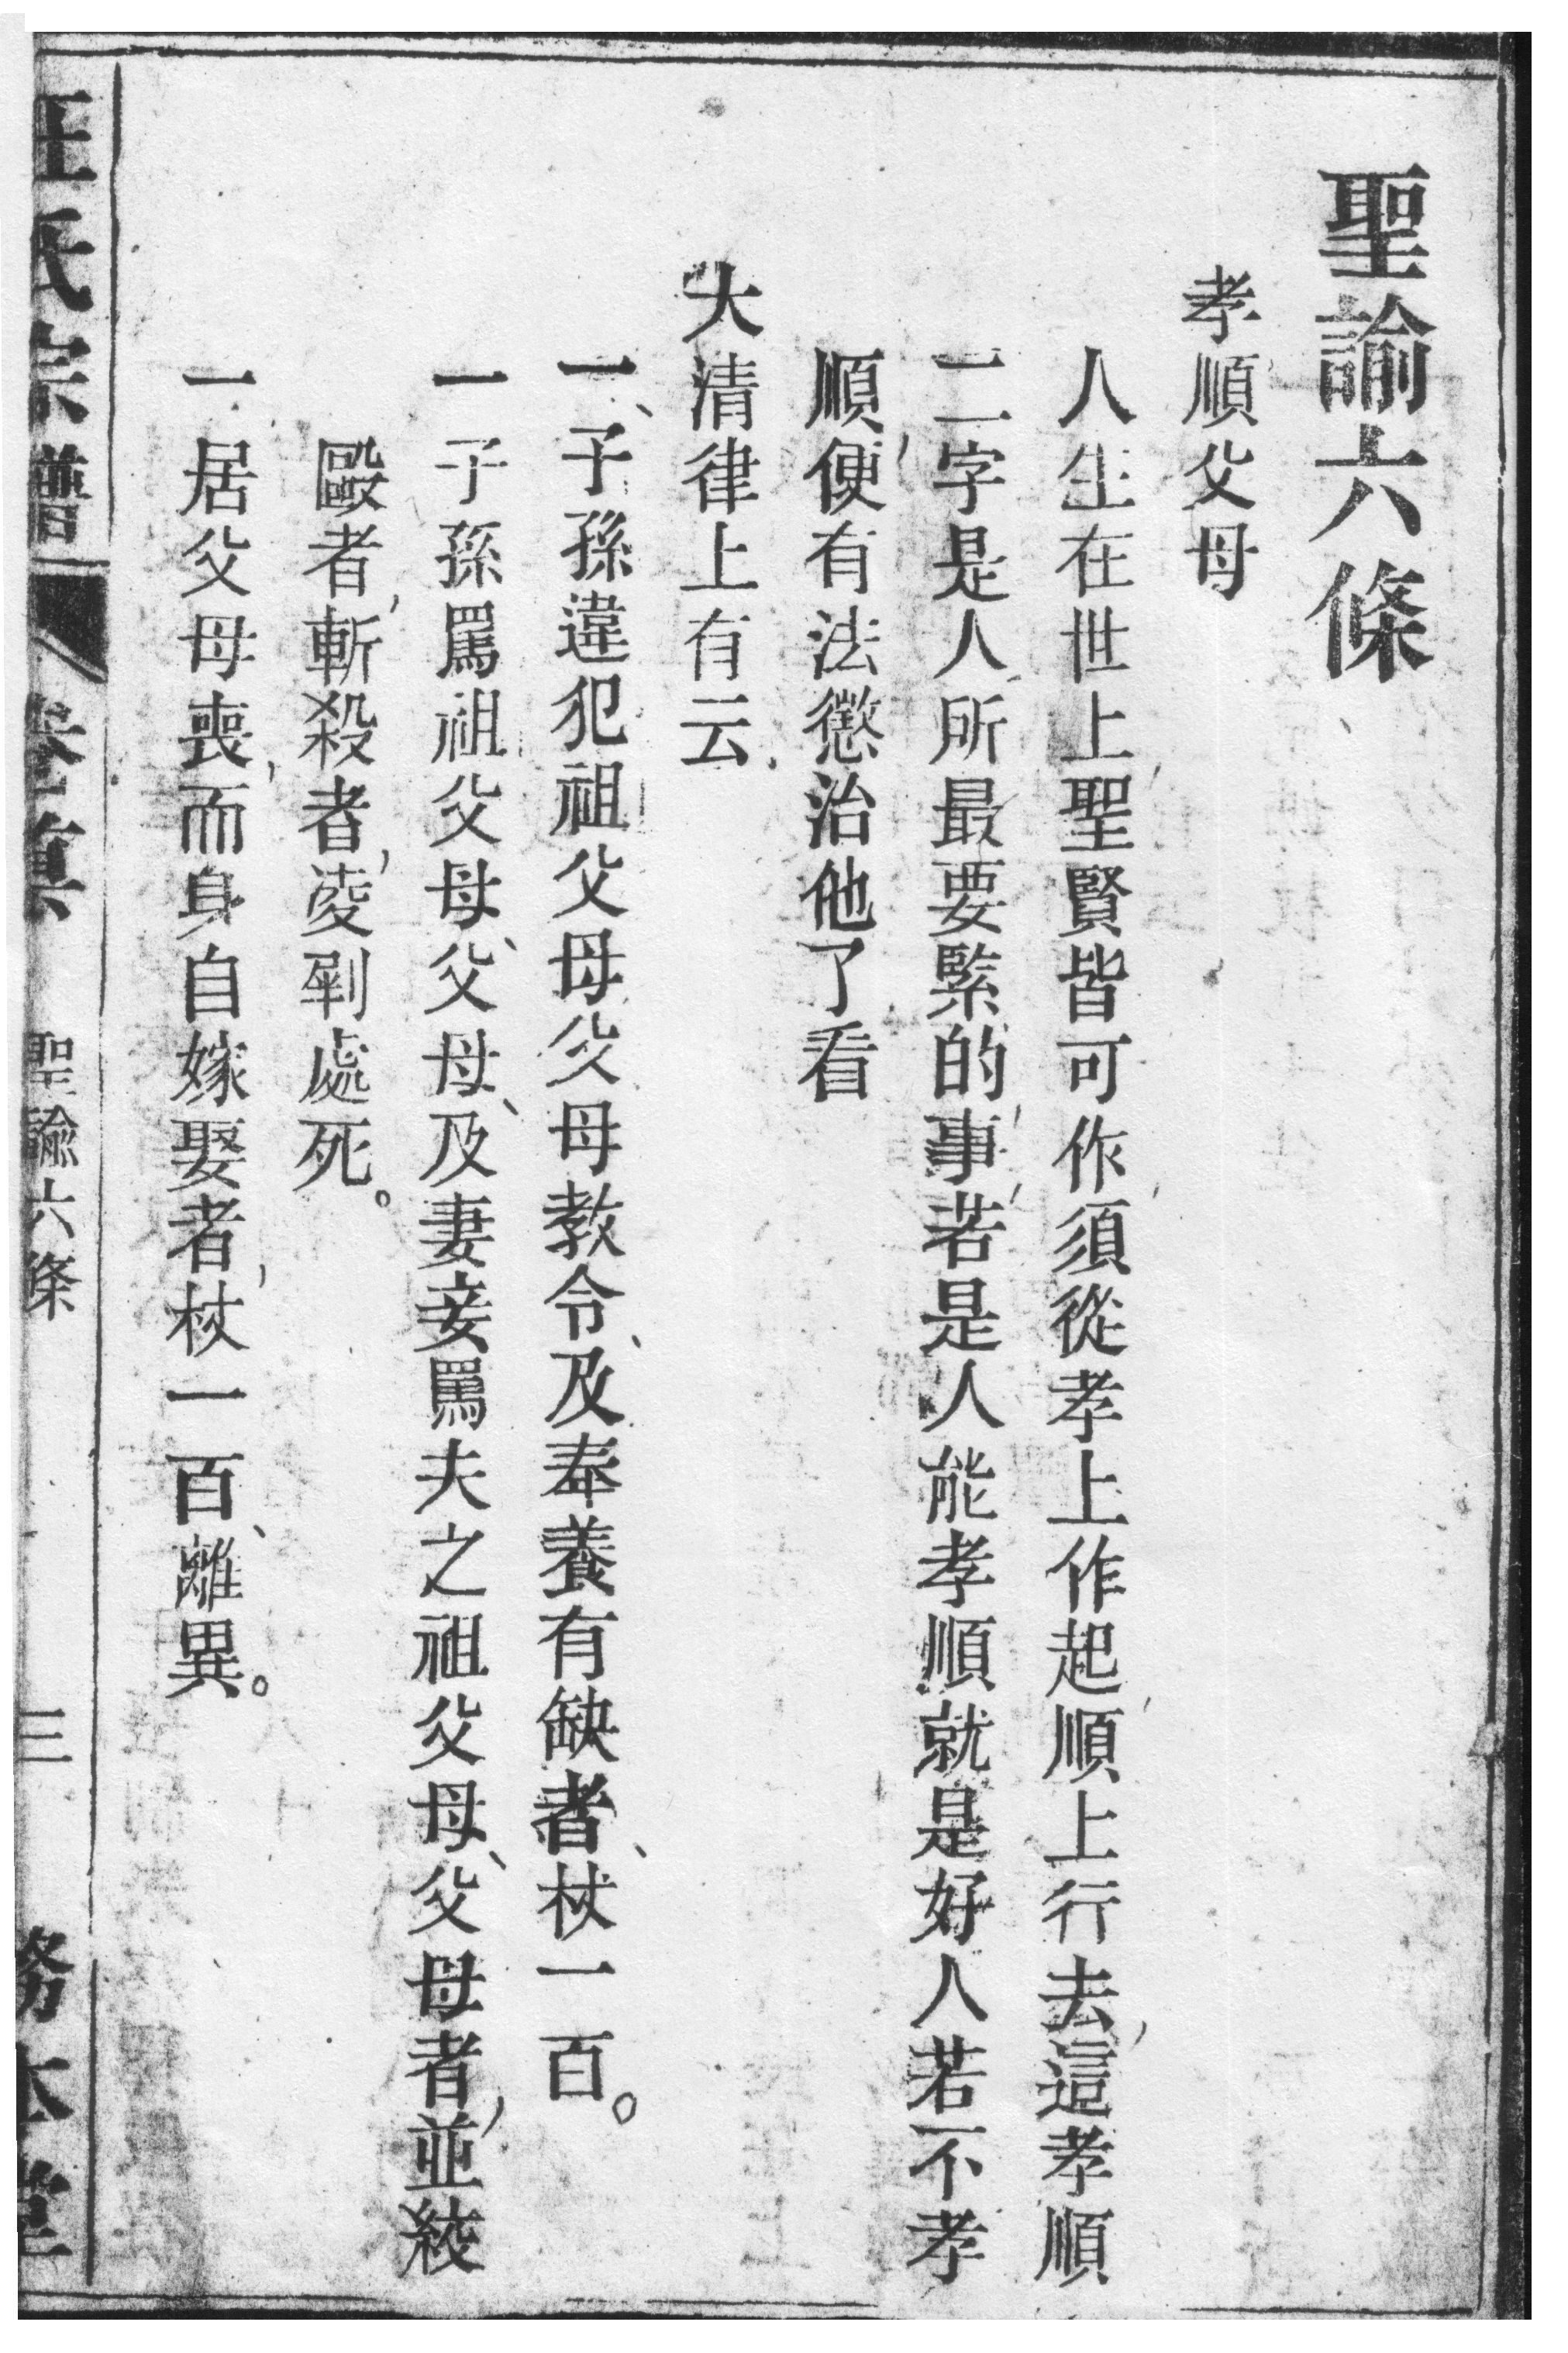 聖諭六條
孝順父母
人生在世上聖賢皆可作須從孝上作起順上行去這孝順
二字是人所最要緊的事若是人能孝順就是好人若不孝
順便有法懲治他了看
大清律上有云
一、子孫違犯祖父母父母教令、及奉養有缺者、杖一百。
一子孫罵祖父母、父母、及妻妾罵夫之祖父母、父母者，並絞
毆者，斬殺者，凌剮處死。
一居父母喪，而身自嫁娶者，杖一百、離異。
汪氏宗譜 卷真 聖諭六條 三 務本堂